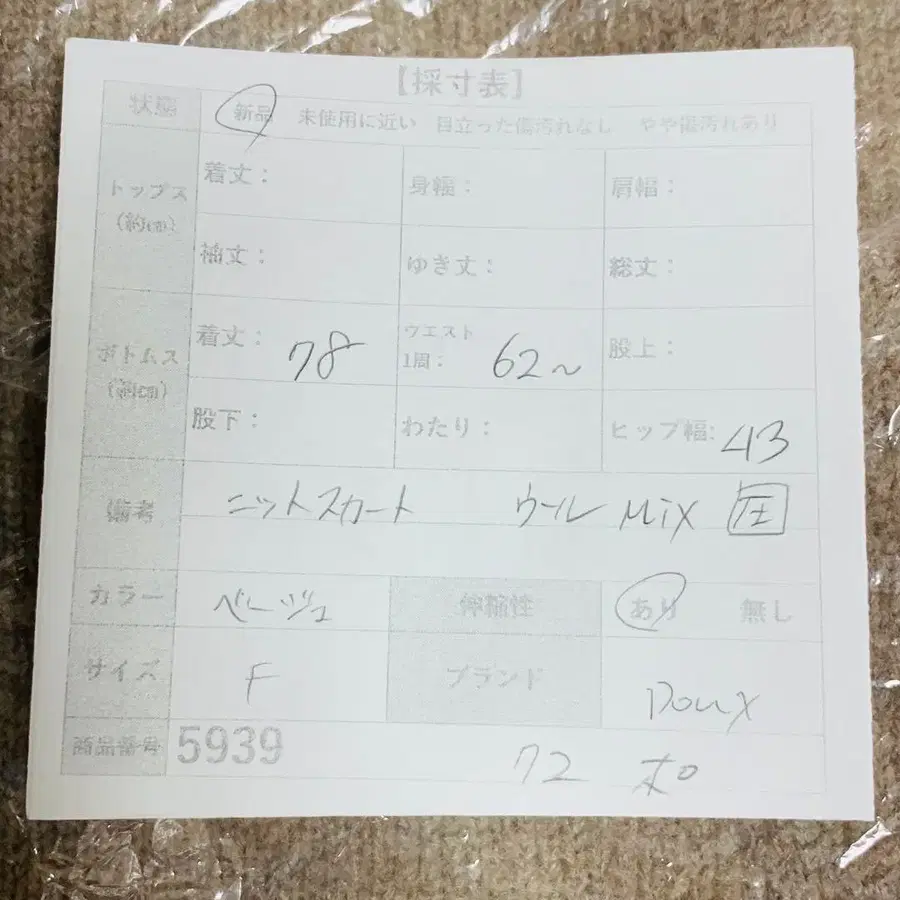 【採寸表】
状態 新品 未使用に近い 目立った傷汚れなし やや傷汚れあり
トップス(約cm) 着丈： 身幅： 肩幅：
袖丈： ゆき丈： 総丈：
ボトムス(約cm) 着丈：78 ウエスト1周：62〜 股上：
股下： わたり： ヒップ幅:43
備考 ニットスカート ウール MiX 圧
カラー ベージュ 伸縮性 あり 無し
サイズ F ブランド Doux
商品番号 5939 72 ホ0